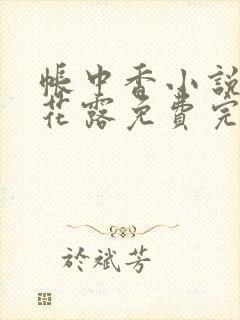 帳中香小說
花露免費完
於斌芳